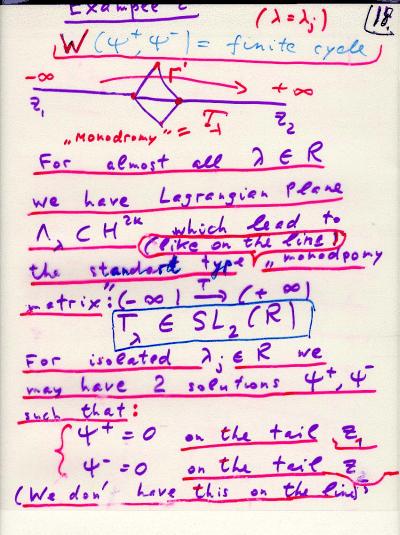 Example
(λ = λj) 18.
W (Ψ⁺, Ψ⁻) = finite cycle
-∞ Γ' + ∞
z₁ z₂
"monodromy" = T
For almost all λ ∈ R
we have Lagrangian plane
Λλ ⊂ H²ᵏ which lead to
(like on the line)
the standart type "monodromy
matrix": (-∞) T→ (+ ∞)
Tλ ∈ SL₂(R)
For isolated λj ∈ R we
may have 2 solutions Ψ⁺, Ψ⁻
such that:
Ψ⁺ = 0 on the tail z₁
Ψ⁻ = 0 on the tail z₂
(We don' have this on the line)